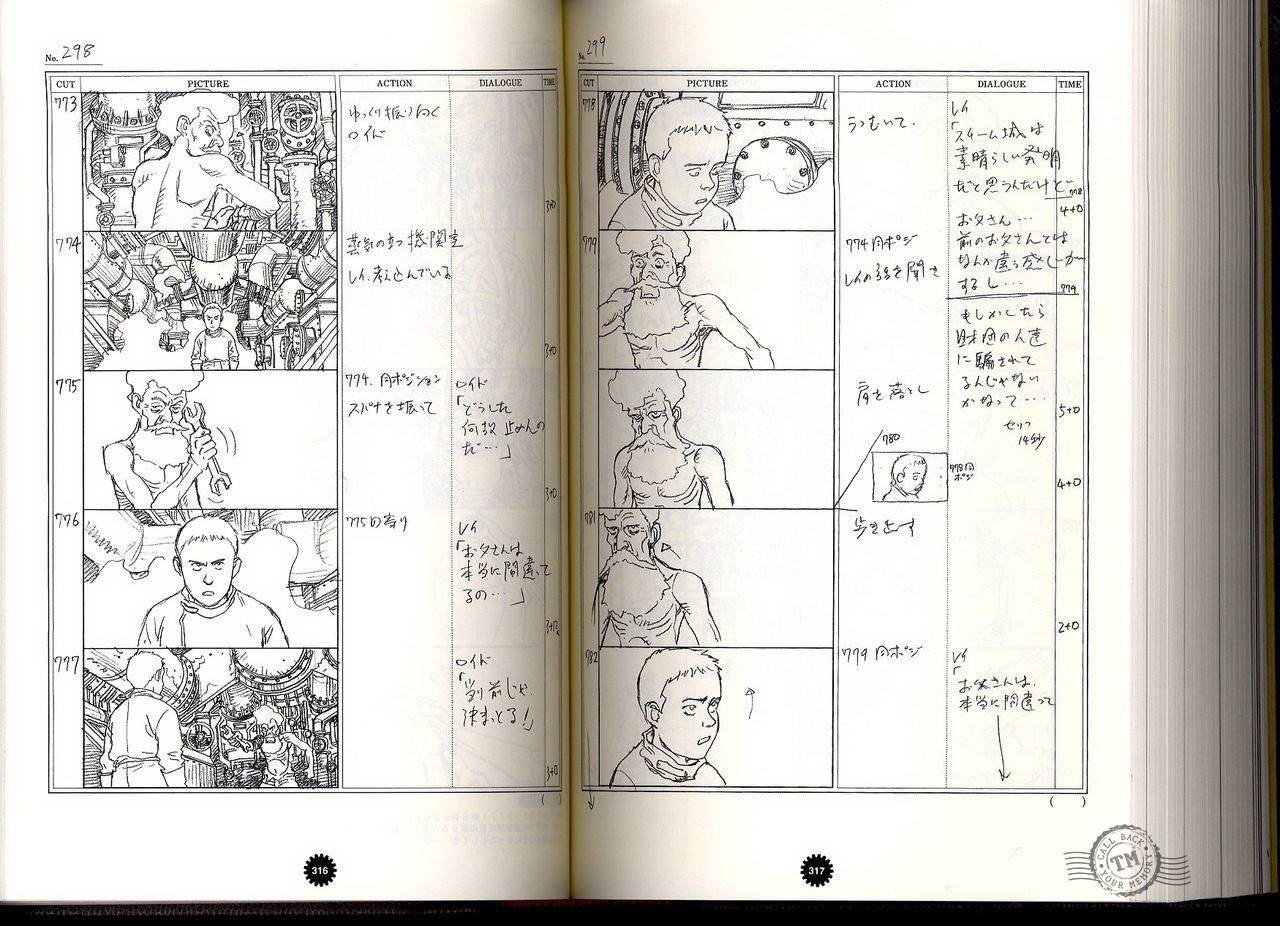 No. 298
CUT PICTURE ACTION DIALOGUE TIME
773
ゆっくり振り向く
ロイド
3+0
774
蒸気の立つ機関室
レイ、考え込んでいる
3+0
775
774. 同ポジション
スパナを振って
ロイド
「どうした
何故止めんの
だ…」
3+0
776
775の寄り
レイ
「お父さんは
本当に間違って
るの…」
3+12
777
ロイド
「当り前じゃ
決まっとる!」
3+0
( )
316
No. 299
CUT PICTURE ACTION DIALOGUE TIME
778
うつむいて.
レイ
「スチーム城は
素晴らしい発明
だと思うんだけど
778
4+0
779
774同ポジ
レイの話を聞き
お父さん…
前のお父さんとは
なんか違う感じが
するし…
779
もしかしたら
財団の人達
に騙されて
るんじゃない
かなって…
セリフ
14秒
5+0
肩を落とし
780
778同
ポジ
4+0
781
歩き出す
2+0
782
779同ポジ
レイ
「
お父さんは、
本当に間違って
( )
317
CALL BACK
TM
YOUR MEMORY